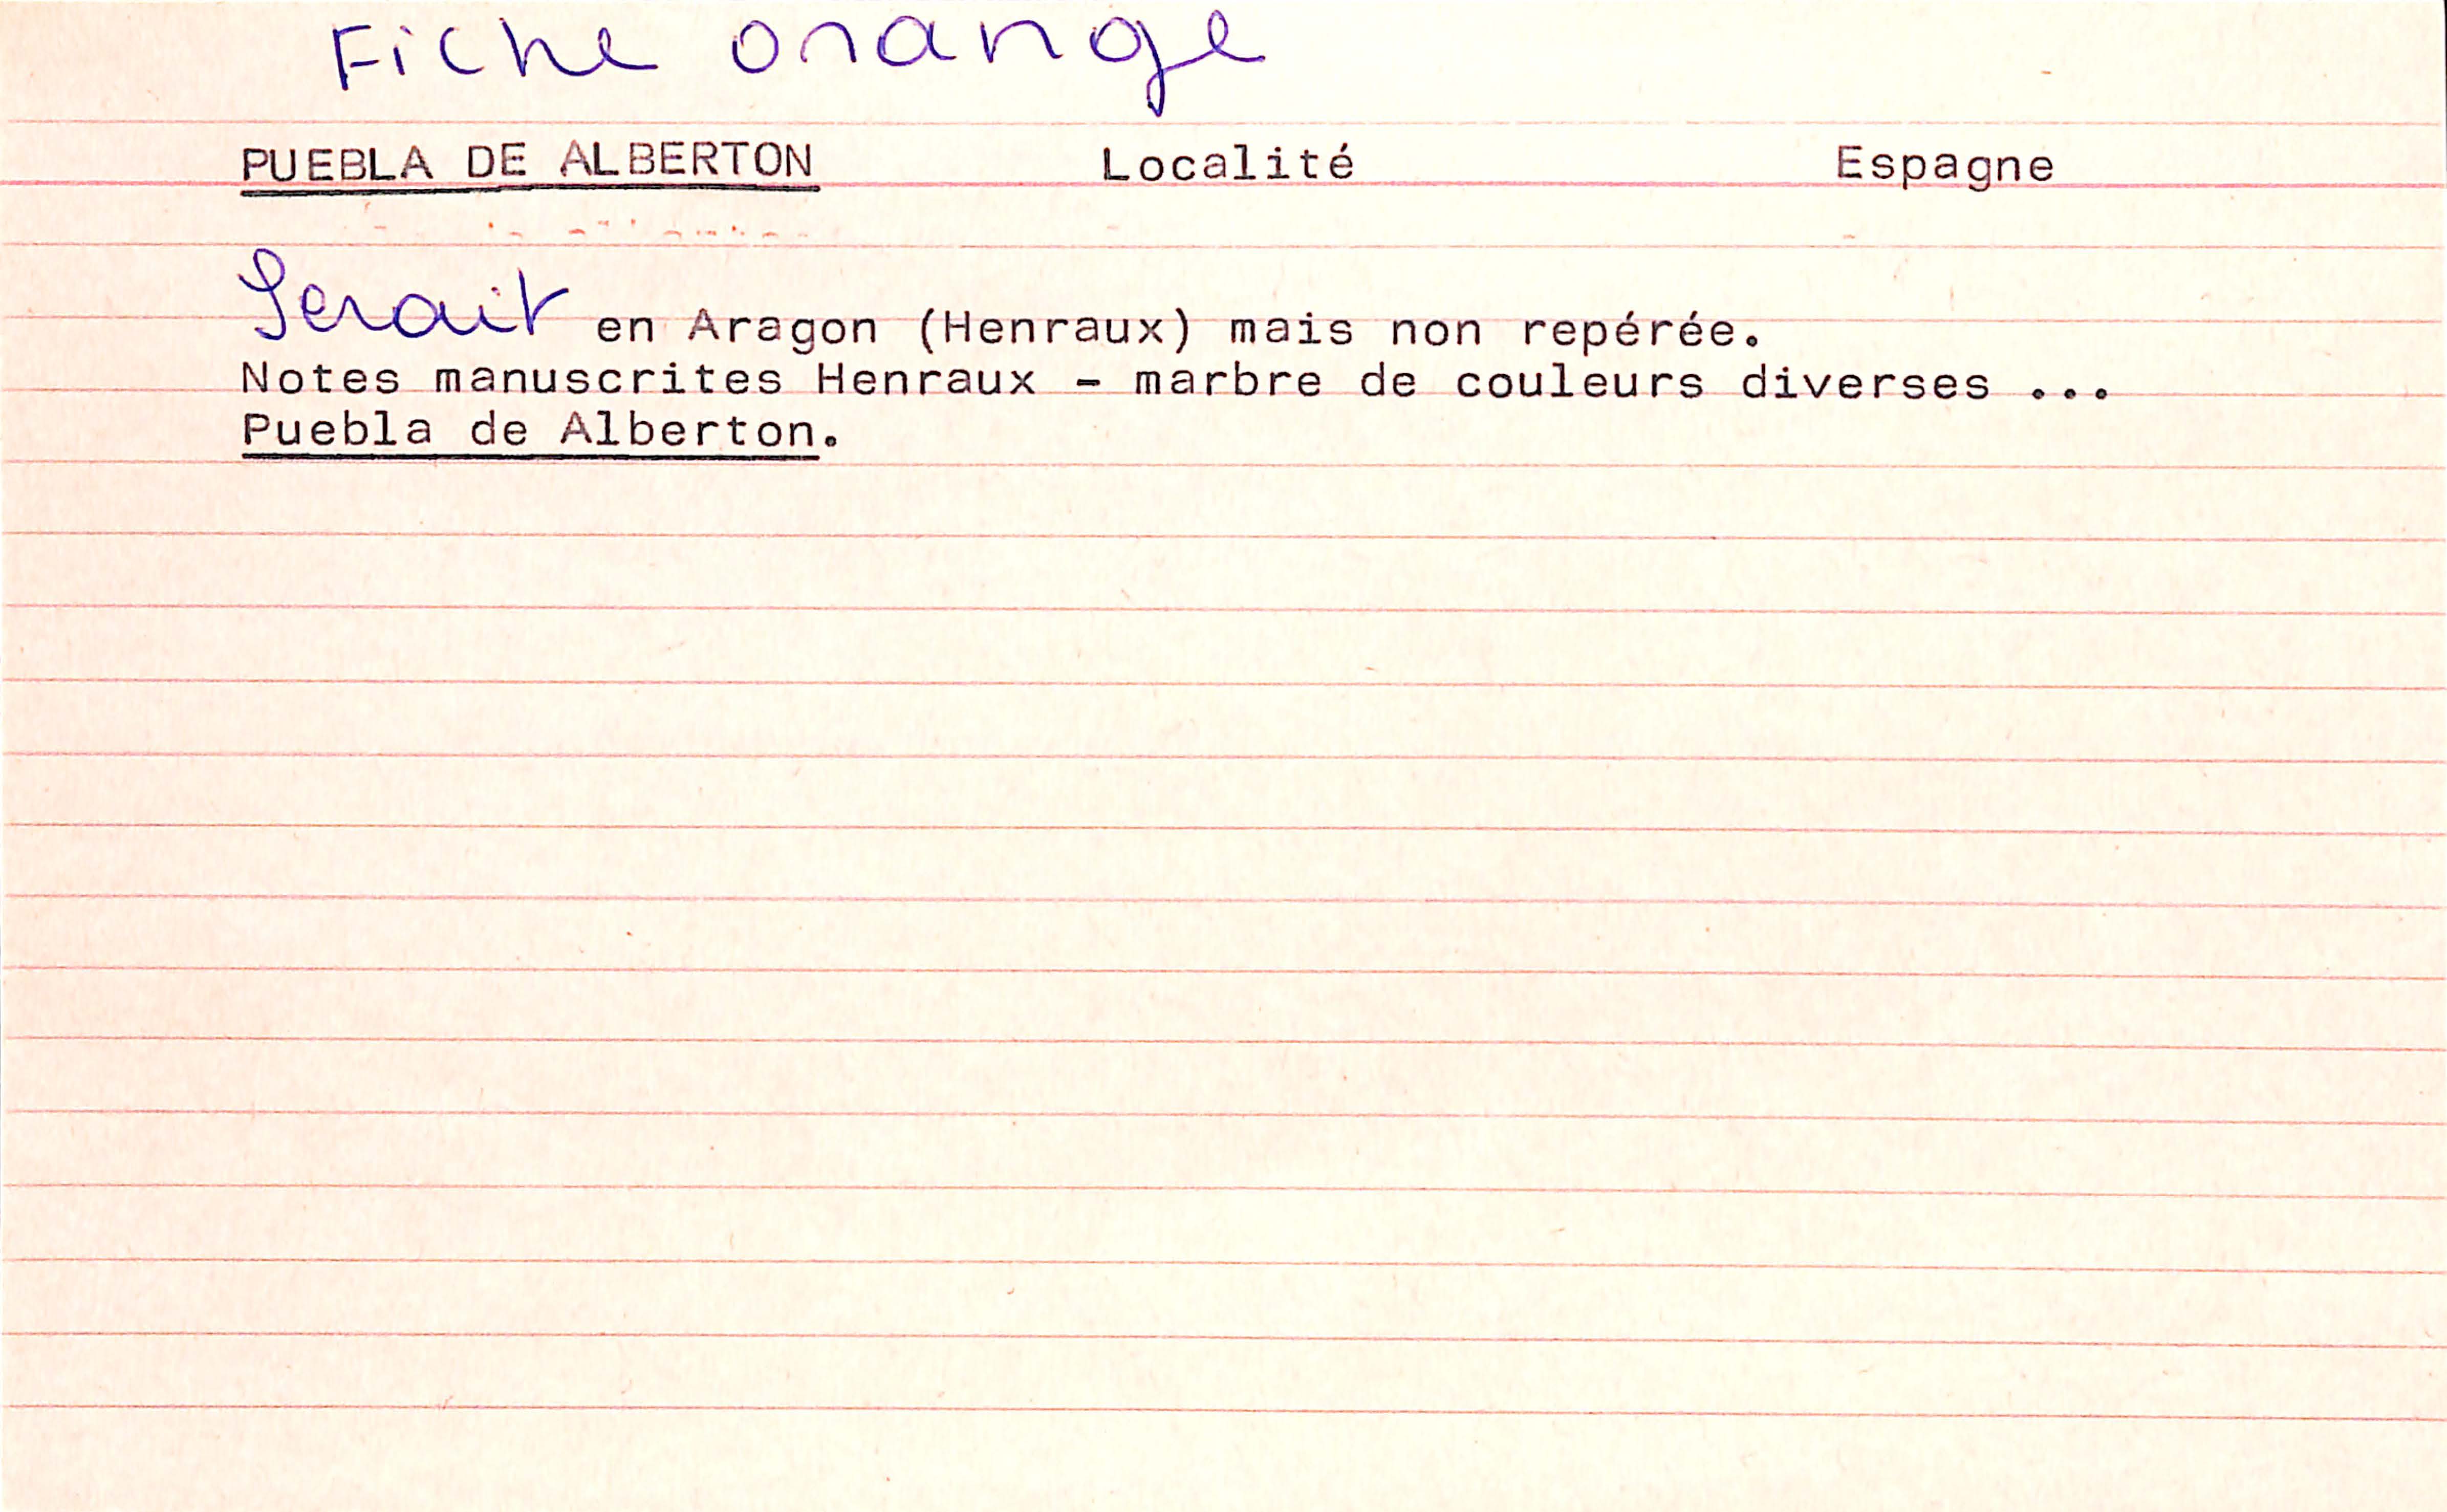 Fiche orange
PUEBLA DE ALBERTON Localité Espagne
Serait en Aragon (Henraux) mais non repérée.
Notes manuscrites Henraux - marbre de couleurs diverses ...
Puebla de Alberton.